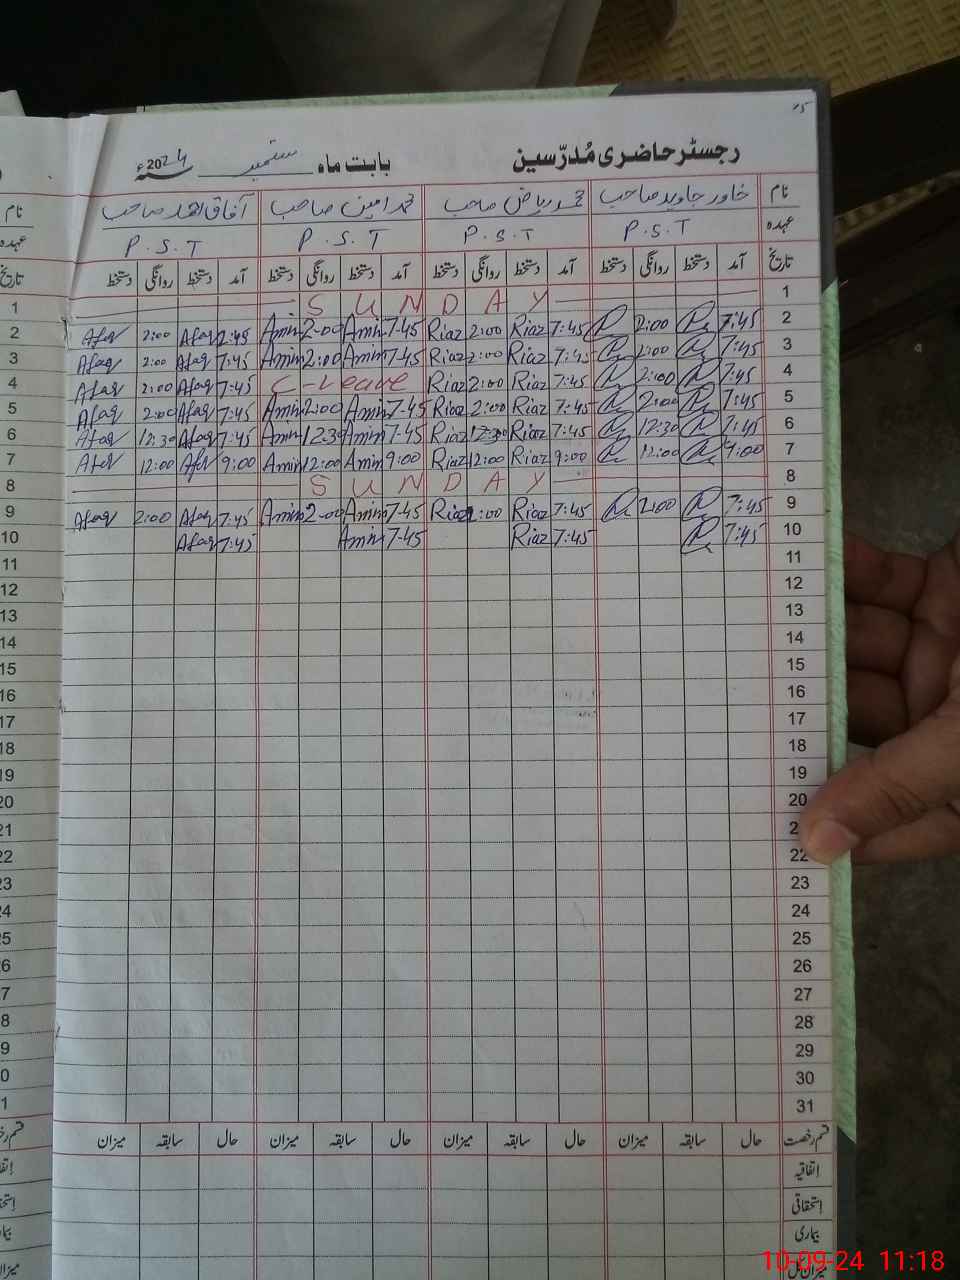 ۲۵
رجسٹر حاضری مُدرّسین بابت ماہ ستمبر 2024ء
نام خاور جاوید صاحب محمد ریاض صاحب محمد امین صاحب آفاق احمد صاحب
عہدہ P.S.T P.S.T P.S.T P.S.T
تاریخ آمد دستخط روانگی دستخط آمد دستخط روانگی دستخط آمد دستخط روانگی دستخط آمد دستخط روانگی دستخط
1 SUNDAY
2 7:45 2:00 7:45 Riaz 2:00 Riaz 7-45 Amin 2-00 Amin 7:45 Afaq 2:00 Afaq
3 7:45 2:00 7:45 Riaz 2:00 Riaz 7-45 Amin 2:00 Amin 7:45 Afaq 2:00 Afaq
4 7:45 2:00 7:45 Riaz 2:00 Riaz C-Leave 7:45 Afaq 2:00 Afaq
5 7:45 2:00 7:45 Riaz 2:00 Riaz 7-45 Amin 2:00 Amin 7:45 Afaq 2:00 Afaq
6 7:45 12:30 7:45 Riaz 12:30 Riaz 7-45 Amin 12-30 Amin 7:45 Afaq 12:30 Afaq
7 9:00 12:00 9:00 Riaz 12:00 Riaz 9:00 Amin 12:00 Amin 9:00 Afaq 12:00 Afaq
8 SUNDAY
9 7:45 2:00 7:45 Riaz 2:00 Riaz 7-45 Amin 2-00 Amin 7:45 Afaq 2:00 Afaq
10 7:45 7:45 Riaz 7-45 Amin 7:45 Afaq
11
12
13
14
15
16
17
18
19
20
22
23
24
25
26
27
28
29
30
31
قسم رخصت حال سابقہ میزان حال سابقہ میزان حال سابقہ میزان حال سابقہ میزان
اتفاقیہ
استحقاقی
بیماری
میزان کل
10-09-24 11:18